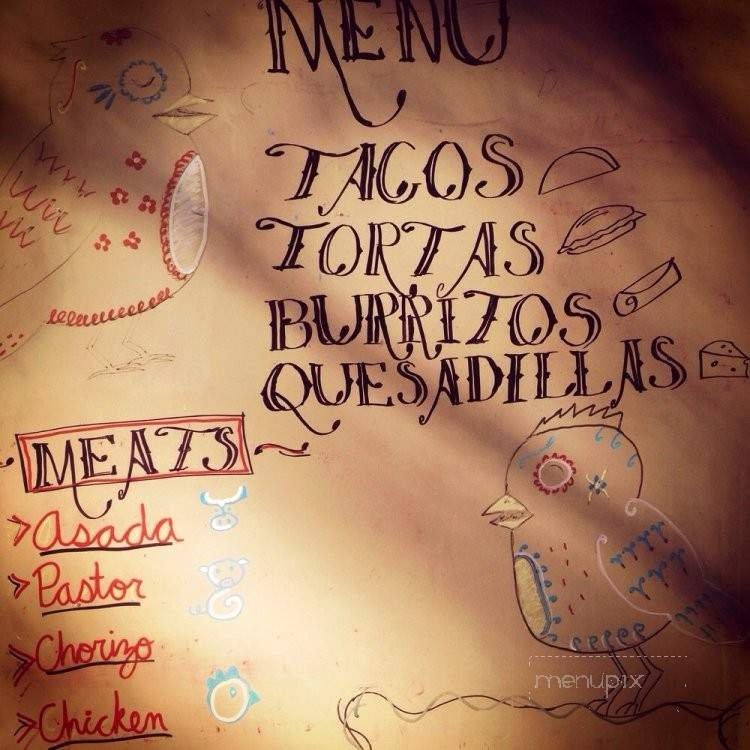 MENU
TACOS
TORTAS
BURRITOS
QUESADILLAS
MEATS
Asada
Pastor
Chorizo
Chicken
menupix